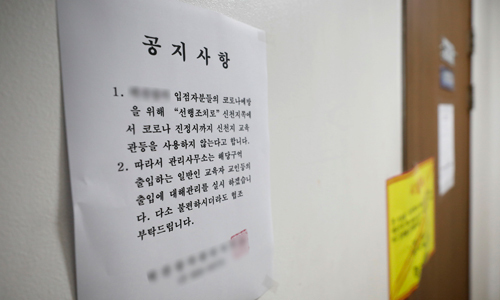 공지사항
1. 입점자분들의 코로나예방
을 위해 "선행조치로" 신천지쪽에
서 코로나 진정시까지 신천지 교육
관등을 사용하지 않는다고 합니다.
2. 따라서 관리사무소는 해당구역
출입하는 일반인 교육자 교인등의
출입에 대해관리를 실시 하겠습니
다. 다소 불편하시더라도 협조
부탁드립니다.